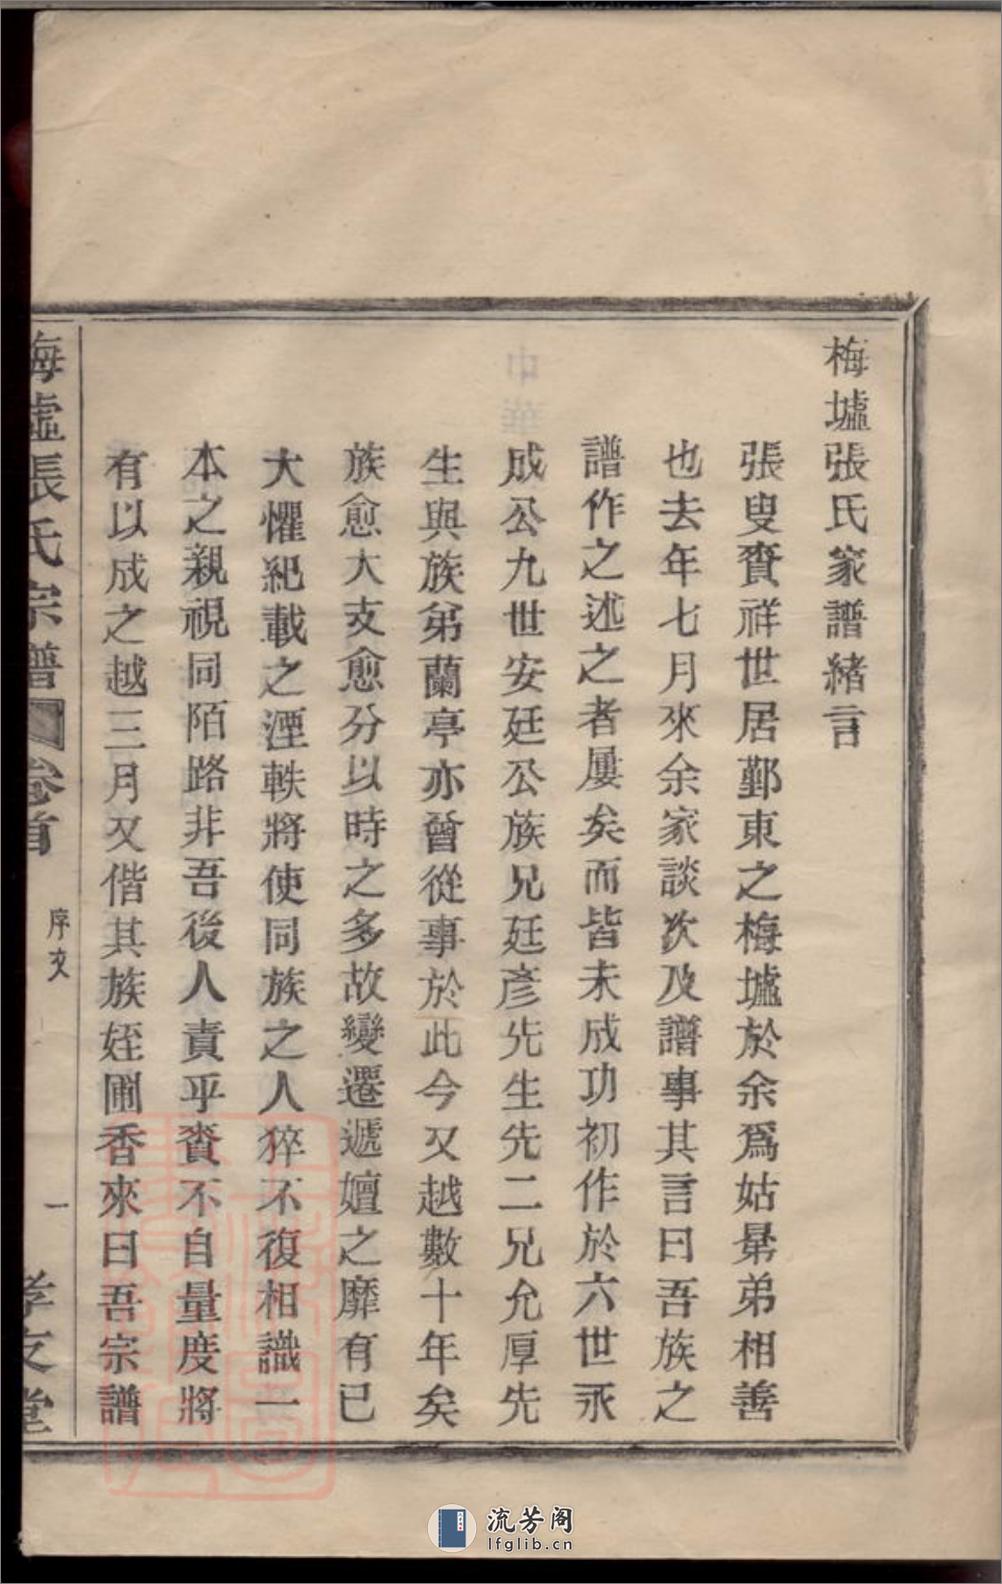 梅墟張氏家譜緒言
張叟賚祥世居鄞東之梅墟於余爲姑㬪弟相善
也去年七月來余家談次及譜事其言曰吾族之
譜作之述之者屢矣而皆未成功初作於六世永
成公九世安廷公族兄廷彥先生先二兄允厚先
生與族弟蘭亭亦曾從事於此今又越數十年矣
族愈大支愈分以時之多故變遷遞嬗之靡有已
大懼紀載之湮軼將使同族之人猝不復相識一
本之親視同陌路非吾後人責乎賚不自量度將
有以成之越三月又偕其族姪圃香來曰吾宗譜
梅墟張氏宗譜 卷首 序文 一 孝友堂
中華
流芳阁
lfglib.cn